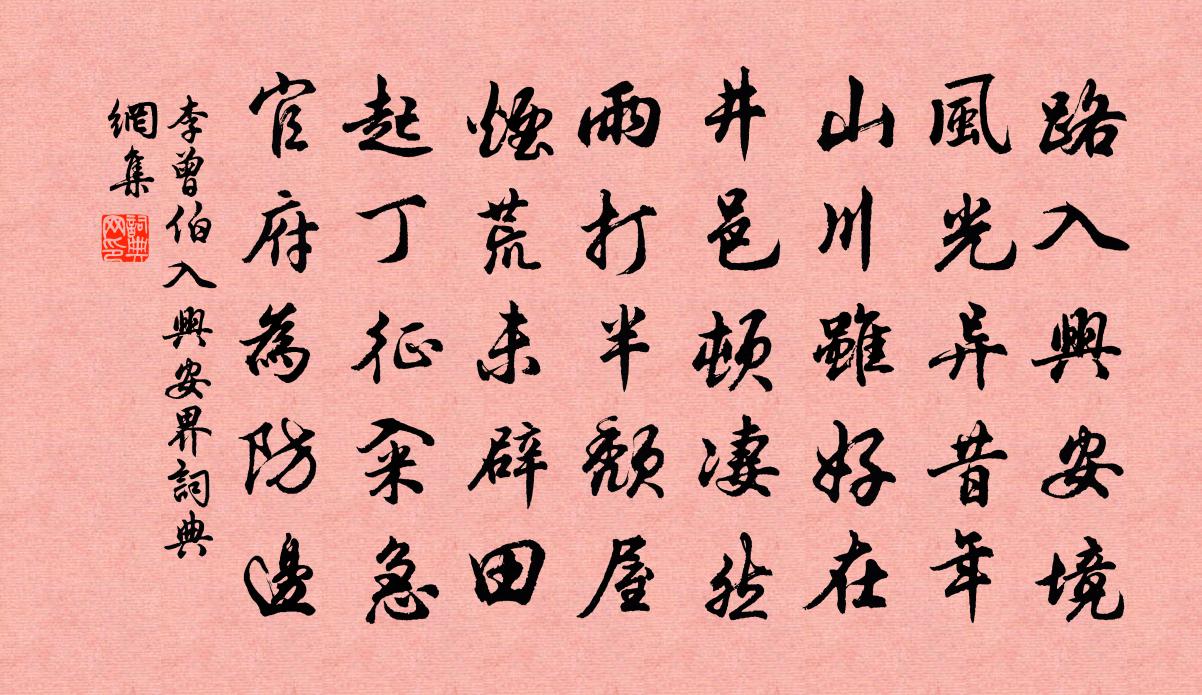 路入興安境
風光异昔年
山川雖好在
井邑頓凄然
雨打半頹屋
煙荒未辟田
起丁征籴急
官府為防邊
李曾伯入興安界詞典
網集
詞典网印